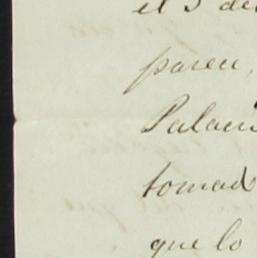 el 3 de
parece,
Palaci
tomad
que lo